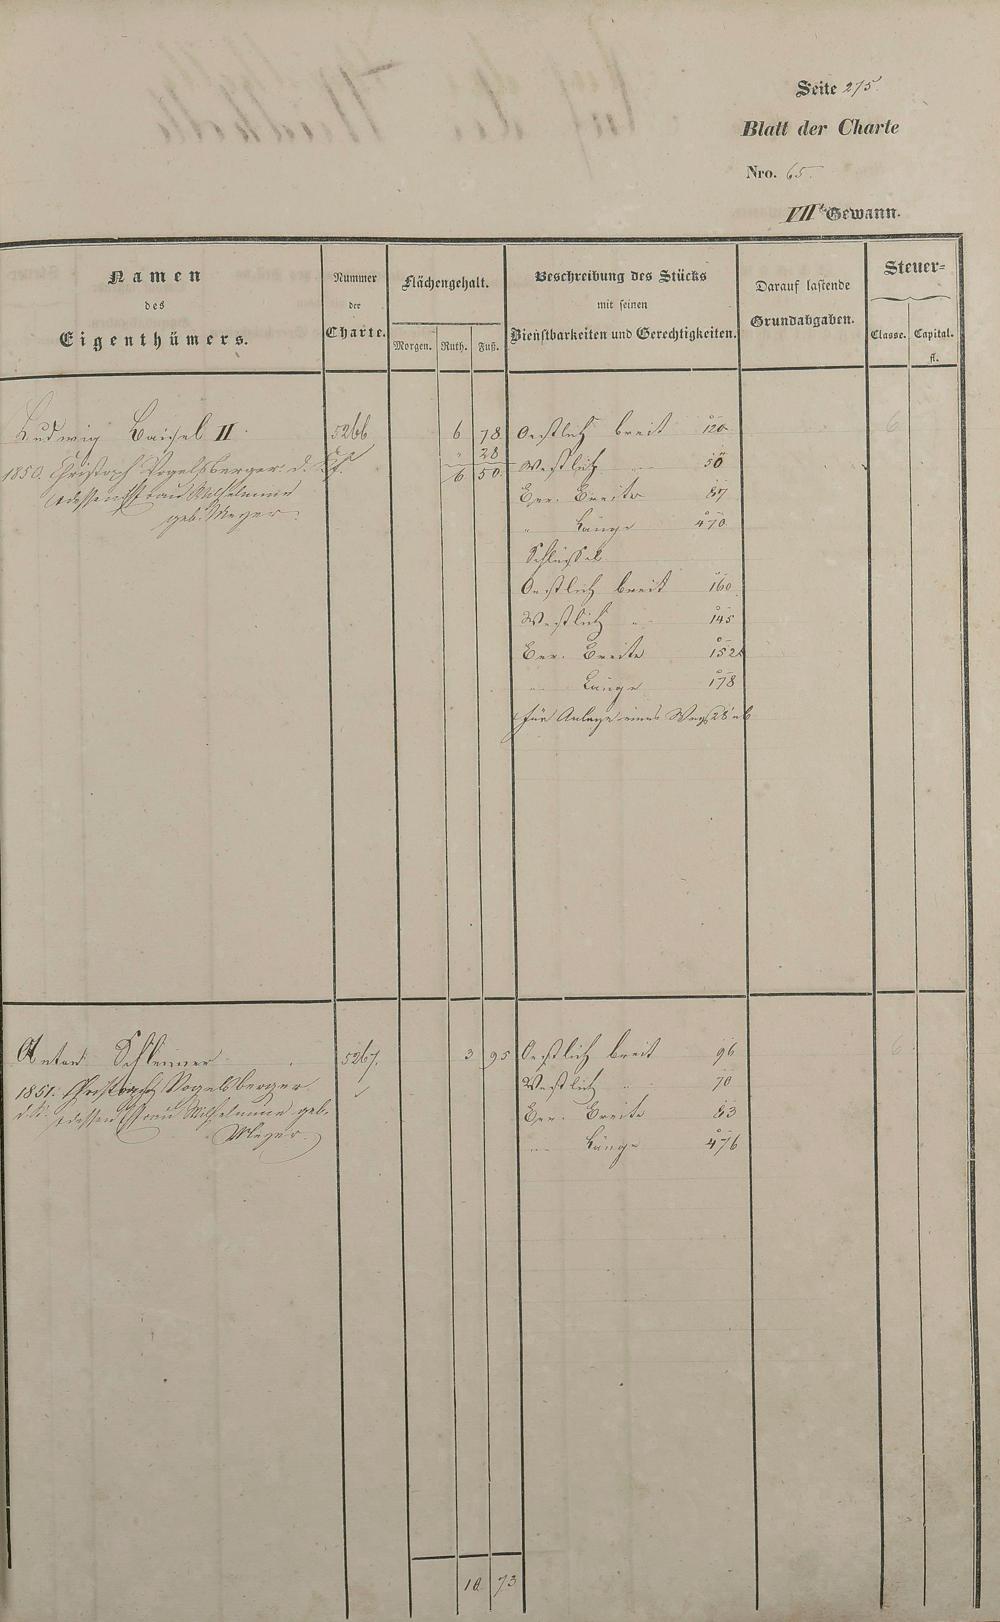 Seite 275.
Blatt der Charte
Nro. 65.
VII te Gewann.
Namen
des
Eigenthümers.
Nummer
der
Charte.
Flächengehalt.
Morgen. Ruth. Fuß.
Beschreibung des Stücks
mit seinen
Dienstbarkeiten und Gerechtigkeiten.
Darauf lastende
Grundabgaben.
Steuer-
Classe. Capital.
fl.
Ludwig Baisel II. 5266 6 78 Oestlich breit 120 6
" 28
1850. Christoph Vogelsberger d. 6 50. Westlich " 50
dessen Ehefrau Wilhelmine Ger. Breite 87
geb. Meyer.
" Länge 470
Schlüssel
Oestlich breit 160
Westlich " 145
Ger. Breite 152
" Länge 178
für Anlage eines Wegs 28 ab
Anton Schleimer 5267. 3 95 Oestlich breit 96 6
1851. Christoph Vogelsberger Westlich " 70
dessen Ehefrau Wilhelmine geb. Ger. Breite 83
Meyer. " Länge 476
10 73